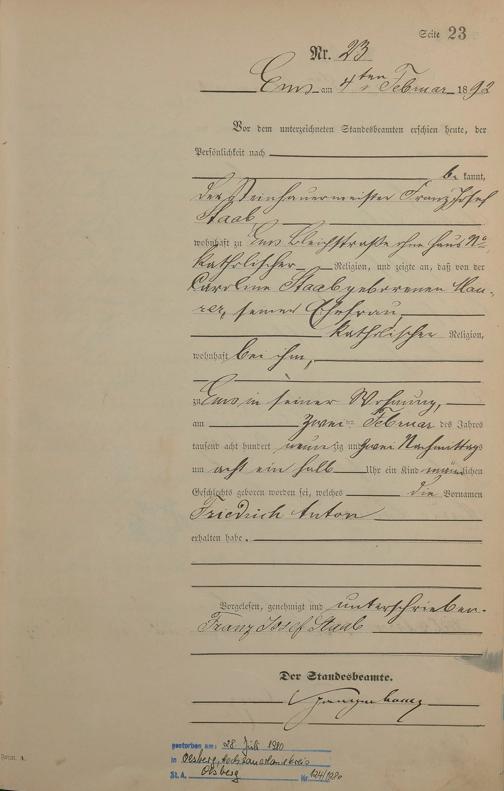 Seite 23
Nr. 23
Ems am 4ten Februar 1892
Vor dem unterzeichneten Standesbeamten erschien heute, der
Persönlichkeit nach
be kannt,
der Steinhauermeister Franz Josef
Staab
wohnhaft zu Ems Bleichstraße ohne Haus No
katholischer Religion, und zeigte an, daß von der
Caroline Staab geborenen Mau-
rer, seiner Ehefrau,
katholischer Religion,
wohnhaft bei ihm,
zu Ems in seiner Wohnung,
am zwei Februar des Jahres
tausend acht hundert neunzig und zwei Nachmittags
um acht ein halb Uhr ein Kind männlichen
Geschlechts geboren worden sei, welches die Vornamen
Friedrich Anton
erhalten habe.
Vorgelesen, genehmigt und unterschrieben.
Franz Josef Staab
Der Standesbeamte.
gestorben am: 28 Juli 1980
in Olsberg, Hochsauerlandkreis
St.A. Olsberg Nr. 124/1980